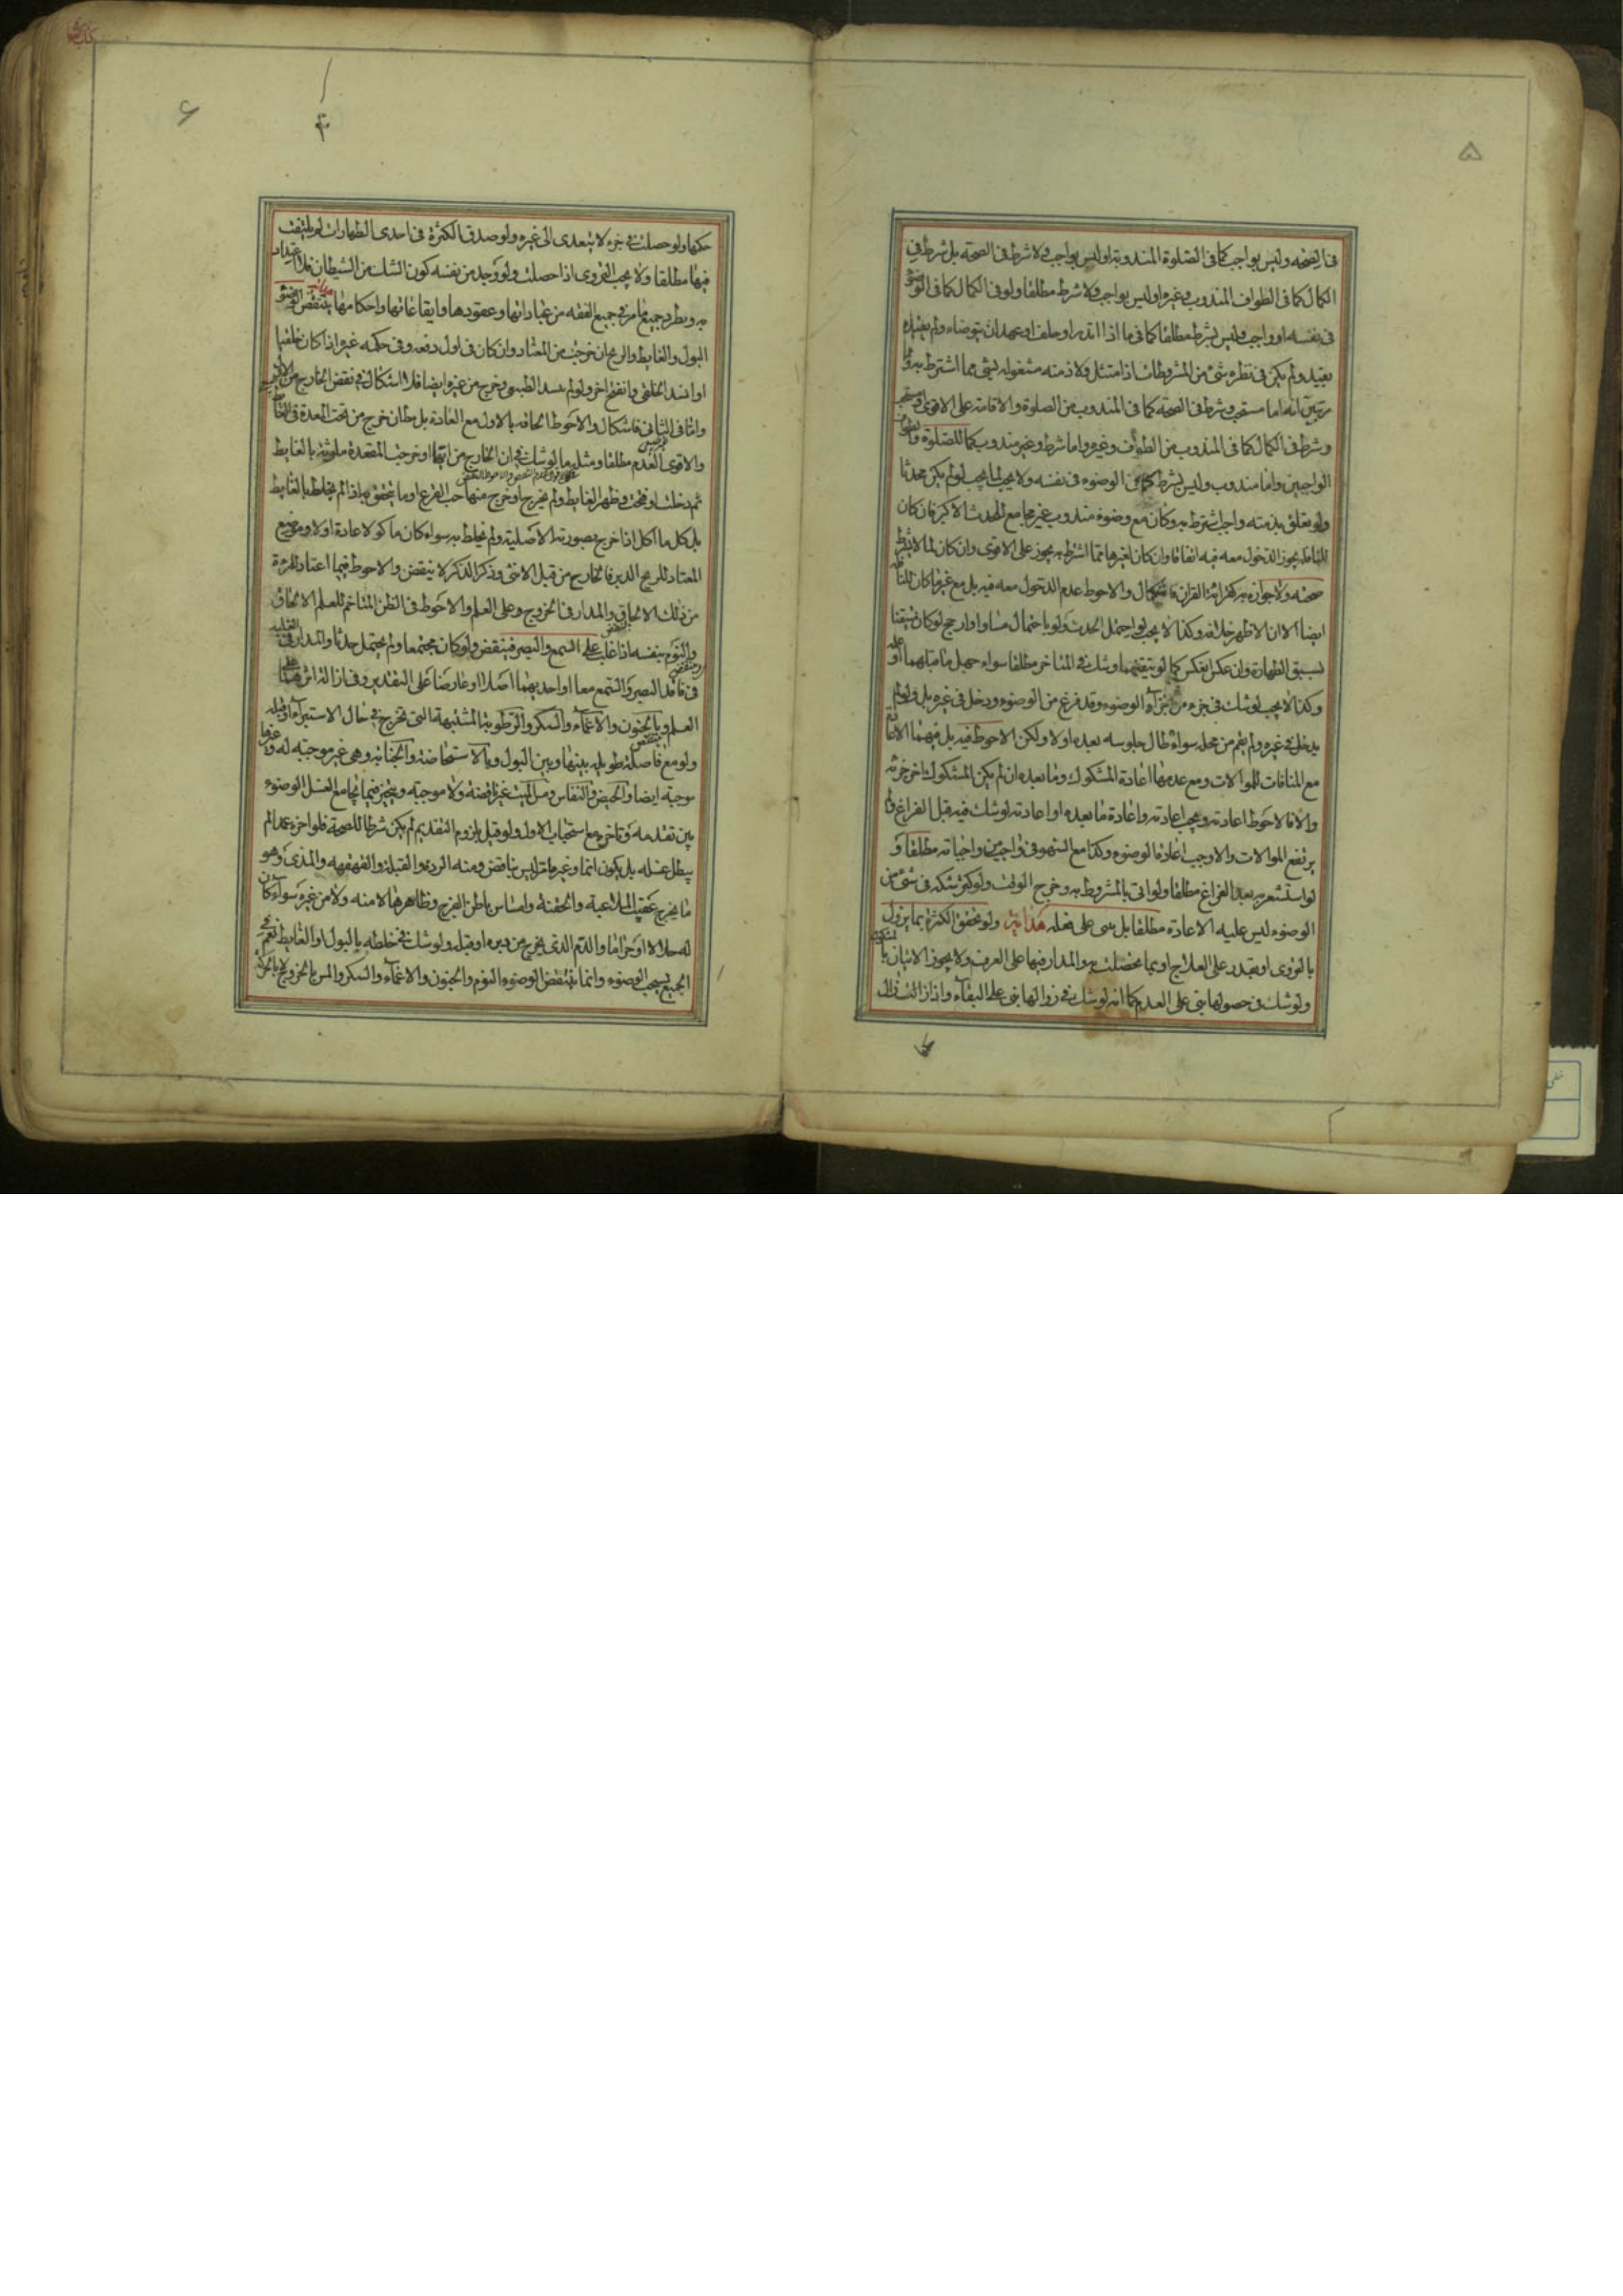 ۵
فی الصحة وليس بواجب كما فی الصلوة المندوبة او ليس بواجب ولا شرط فی الصحة بل شرط فی
الكمال كما فی الطواف المندوب وغيره او ليس بواجب ولا شرط مطلقا ولو فی الكمال كما فی الوضوء
فی نفسه او واجب وليس بشرط مطلقا كما فی ما اذا نذر او حلف او عهد ان يتوضاء ولم يقيده
بقيد ولم يكن فی نظره شیء من المشروطات اذا امتثل ولا ذمته مشغولة لشیء مما اشترط به
انه اما مستحب وشرط فی الصحة كما فی المندوب من الصلوة والاقامة على الاقوى
وشرط فی الكمال كما فی المندوب من الطواف وغيره واما شرط وغير مندوب كما للصلوة والطواف
الواجبين واما مندوب وليس بشرط كما فی الوضوء فی نفسه ولا يجب لو لم يكن محدثا
ولو تعلق بذمته واجب اشترط به وكان مع وضوء مندوب غير مجامع للحدث الاكبر فان كان
للنافلة يجوز الدخول معه فيه اتفاقا وان كان لغيرها مما اشترط به يجوز على الاقوى وان كان لما لا يشترط
صحته ولا جوازه به كقرائة القران فاشكال والاحوط عدم الدخول معه فيه بل مع غيره ما كان للنافلة
ايضا الا ان الاظهر خلافه وكذا لا يجب لو احتمل الحدث ولو باحتمال مساو او ارجح لو كان متيقنا
بسبق الطهارة وان عكس انعكس كما لو تيقنهما وشك فی المتاخر مطلقا سواء جهل ما قبلهما او علم
وكذا لا يجب لو شك فی جزء من اجزاء الوضوء وقد فرغ من الوضوء ودخل فی غيره بل ولو لم
يدخل فی غيره ولم يقم من محله سواء طال جلوسه بعده او لا ولكن الاحوط فيه بل فيهما الاعادة
مع المنافات للموالات ومع عدمها اعادة المشكوك وما بعده ان لم يكن المشكوك اخر جزئه
والا فالاحوط اعادته ويجب اعادته واعادة ما بعده او اعادته لو شك فيه قبل الفراغ ولم
يرتفع الموالات والا وجب اعادة الوضوء وكذا مع السهو فی واجبين واجباته مطلقا و
لو استشعر به بعد الفراغ مطلقا ولو اتى بالمشروط به وخرج الوقت ولو كثر شكه فی شیء من
الوضوء ليس عليه الاعادة مطلقا بل يبنى على فعله هداية ولو تحقق الكثرة بما يزول
بالتروى او يقدر على العلاج او بما تحصلت به والمدار فيها على العرف ولا يجوز الاتيان بالمشكوك
ولو شك فی حصولها بنى على العدم كما انه لو شك فی زوالها بنى على البقاء واذا زالت زال
۶
حكمها ولو حصلت فی جزء لا يتعدى الى غيره ولو صدق الكثرة فی احدى الطهارات لم يلتفت
فيها مطلقا ولا يجب التروى اذا حصلت ولو وجد من نفسه كون الشك من الشيطان فلا اعتداد
به ويطرد جميع ما مر فی جميع الفقه من عباداتها وعقودها وايقاعاتها واحكامها هداية ينتقض الوضوء
البول والغايط والريح ان خرجت من المعتاد وان كان فی اول دفعه وفی حكمه غيره اذا كان خلقيا
او انسد الخلقی وانفتح اخر ولو لم ينسد الطبيعی وخرج من غيره ايضا فلا اشكال فی نقض الخارج من
واما فی الثانی فاشكال والاحوط الحاقه بالاول مع العادة بل مطلق ما خرج من تحت المعدة فی الغايط
والاقوى العدم مطلقا ومثله ما لو شك فی ان الخارج من ايهما او خرجت المقعدة ملوثة بالغايط
ثم دخلت او فتحت وظهر الغايط ولم يخرج او خرج منها حب القرع او ما يتحقق به اذا لم يختلط بالغايط
بل كل ما اكل اذا خرج بصورته الاصلية ولم يخلط به سواء كان ماكولا عادة او لا وموضع
المعتاد للريح الدبر فالخارج من قبل الانثى وذكر الذكر لا ينقض والاحوط فيما اعتاد للمرءة
من ذلك الالحاق والمدار فی الخروج وعلى العلم والاحوط فی الظن المتاخم للعلم الالحاق
والنوم بنفسه اذا غلب على السمع والبصر فينتقض ولو كان مجتمعا ولم يحتمل حدثا والمدار فی
فی فاقد البصر والسمع معا او احديهما اصلا او عارضا على التقدير وفی ازالة اثرهما على
العلم وبالجنون والاغماء والسكر والرطوبة المشتبهة التی تخرج فی حال الاستبراء او قبله
ولو مع فاصلة طويلة بينها وبين البول وبالاستحاضة والجنابة وهی غير موجبة له وغيرها
موجبة ايضا والحيض والنفاس ومس الميت غير ناقضة ولا موجبة ويتخير فيما يجامع الغسل الوضوء
بين تقدمه وتاخره مع استحباب الاول ولو قيل بلزوم التقديم لم يكن شرطا للصحة فلو اخره عمدا لم
يبطل غسله بل يكون اثما وغير ما مر ليس بناقض ومنه الردة والقبلة والقهقهة والمذی وهو
ما يخرج عقيب الملاعبة والحقنة وامساس باطن الفرج وظاهرها لا منه ولا من غيره سواء كان
له حلالا او حراما والدم الذی يخرج من دبره او قبله ولو شك فی خلطه بالبول او الغايط نعم
الجميع يستحب الوضوء وانما ينتقض الوضوء النوم والجنون والاغماء والسكر والمس بالخروج